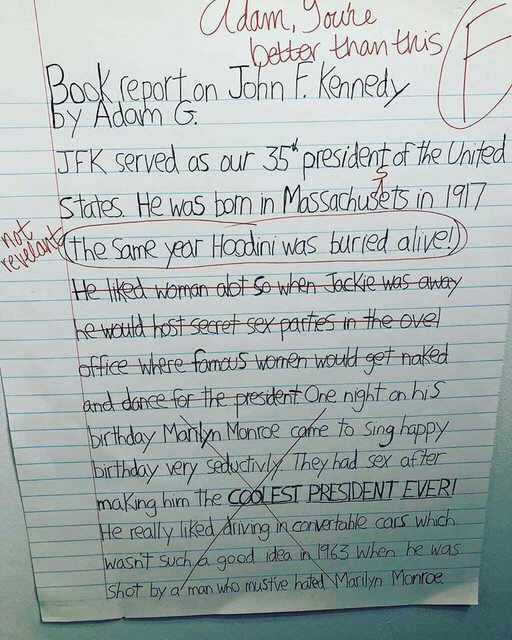 Adam, You're
better than this
F
Book report on John F. Kennedy
by Adam G.
JFK served as our 35th president of the United
States. He was born in Massachusets in 1917
not
revelant
(the same year Hoodini was buried alive!)
He liked woman alot so when Jackie was away
he would host secret sex parties in the ovel
office where famous women would get naked
and dance for the president One night on his
birthday Marilyn Monroe came to sing happy
birthday very seductivly. They had sex after
making him the COOLEST PRESIDENT EVER!
He really liked driving in convertable cars which
wasn't such a good idea in 1963 when he was
shot by a man who mustve hated Marilyn Monroe